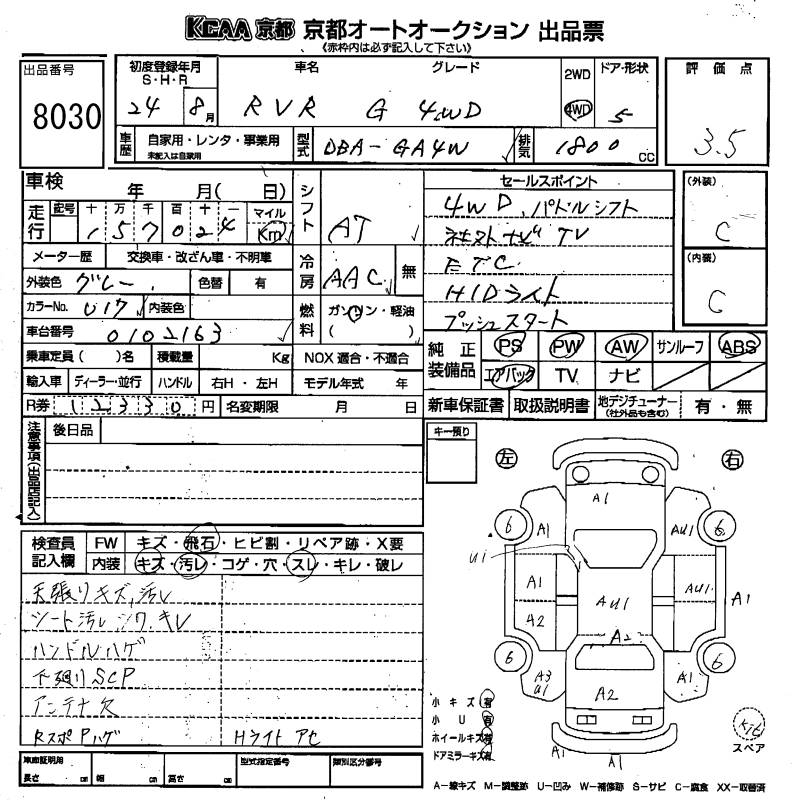 KCAA 京都 京都オートオークション 出品票
《赤枠内は必ず記入して下さい》
出品番号
8030
初度登録年月 S・H・R
24 8月
車名 グレード
RVR G 4WD
2WD 4WD
ドア・形状
5
評価点
3.5
車歴 自家用・レンタ・事業用
未記入は自家用
型式 DBA-GA4W
排気 1800 cc
車検 年 月( 日)
走行 記号 十 万 千 百 十 一 マイル Km
157024
シフト AT
メーター歴 交換車・改ざん車・不明車
冷房 AAC 無
外装色 グレー 色替 有
カラーNo. U17 内装色
燃料 ガソリン・軽油 ( )
車台番号 0102163
乗車定員( )名 積載量 Kg NOX 適合・不適合
輸入車 ディーラー・並行 ハンドル 右H・左H モデル年式 年
R券 12330円 名変期限 月 日
セールスポイント
4WD、パドルシフト
社外ナビ TV
ETC
HIDライト
プッシュスタート
(外装)
C
(内装)
C
純正装備品 PS PW AW サンルーフ ABS
エアバック TV ナビ
新車保証書 取扱説明書 地デジチューナー(社外品も含む) 有・無
注意事項(出品店記入)
後日品
キー預り
左 右
検査員記入欄 FW キズ・飛石・ヒビ割・リペア跡・X要
内装 キズ・汚レ・コゲ・穴・スレ・キレ・破レ
天張りキズ、汚レ
シート汚レ、シワ、キレ
ハンドルハゲ
下廻りSCP
アンテナ欠
RスポPハゲ Hライトアセ
A1
6 A1 AU1 6
U1
A1 AU1 AU1 A1
A2 A2
6 6
A3 A1
U1 A2
A1 A1
小キズ 有
小U 有
ホイールキズ 有
ドアミラーキズ 有
スペア
車庫証明用 長さ cm 幅 cm 高さ cm 型式指定番号 類別区分番号
A-線キズ M-調整跡 U-凹み W-補修跡 S-サビ C-腐食 XX-取替済